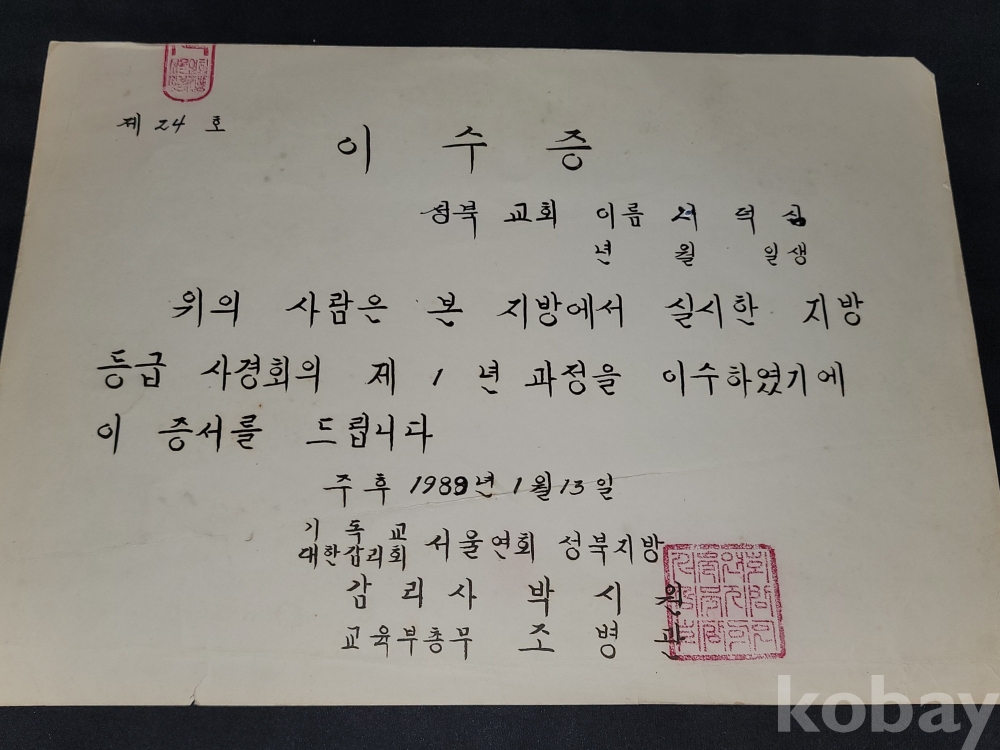 제 24 호
이 수 증
성북 교회 이름 서 덕 심
년 월 일생
위의 사람은 본 지방에서 실시한 지방
등급 사경회의 제 1 년 과정을 이수하였기에
이 증서를 드립니다
주후 1989년 1월 13일
기독교
대한감리회 서울연회 성북지방
감리사 박 시 원
교육부총무 조 병 관
kobay